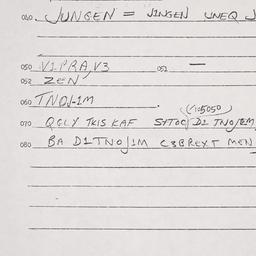 040 JUNGEN = JINGEN UNEQ J
050 V1PRA, V3 051 —
052 ZEN
060 TNO/-1M .
(105050)
070 QGLY TKIS KAF SYTOC/ D1 TNO/EM
080 BA D1TNO/1M C3BREXT MEN